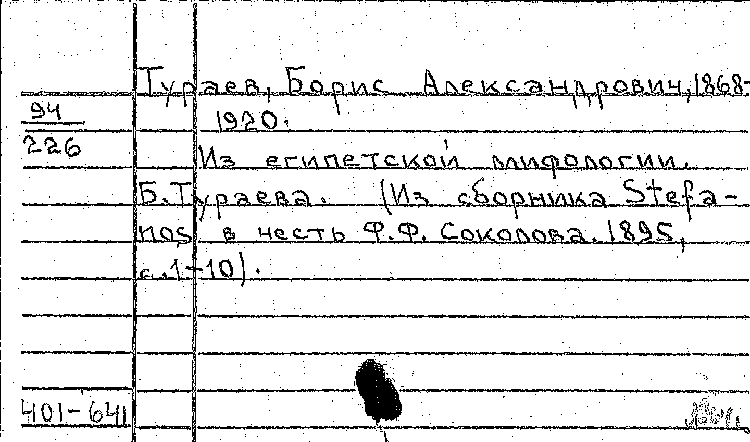 Тураев, Борис Александрович, 1868-
94
1920.
226
Из египетской мифологии.
Б. Тураева. (Из сборника Stefa-
nos в честь Ф.Ф. Соколова. 1895,
с. 1-10).
401-641